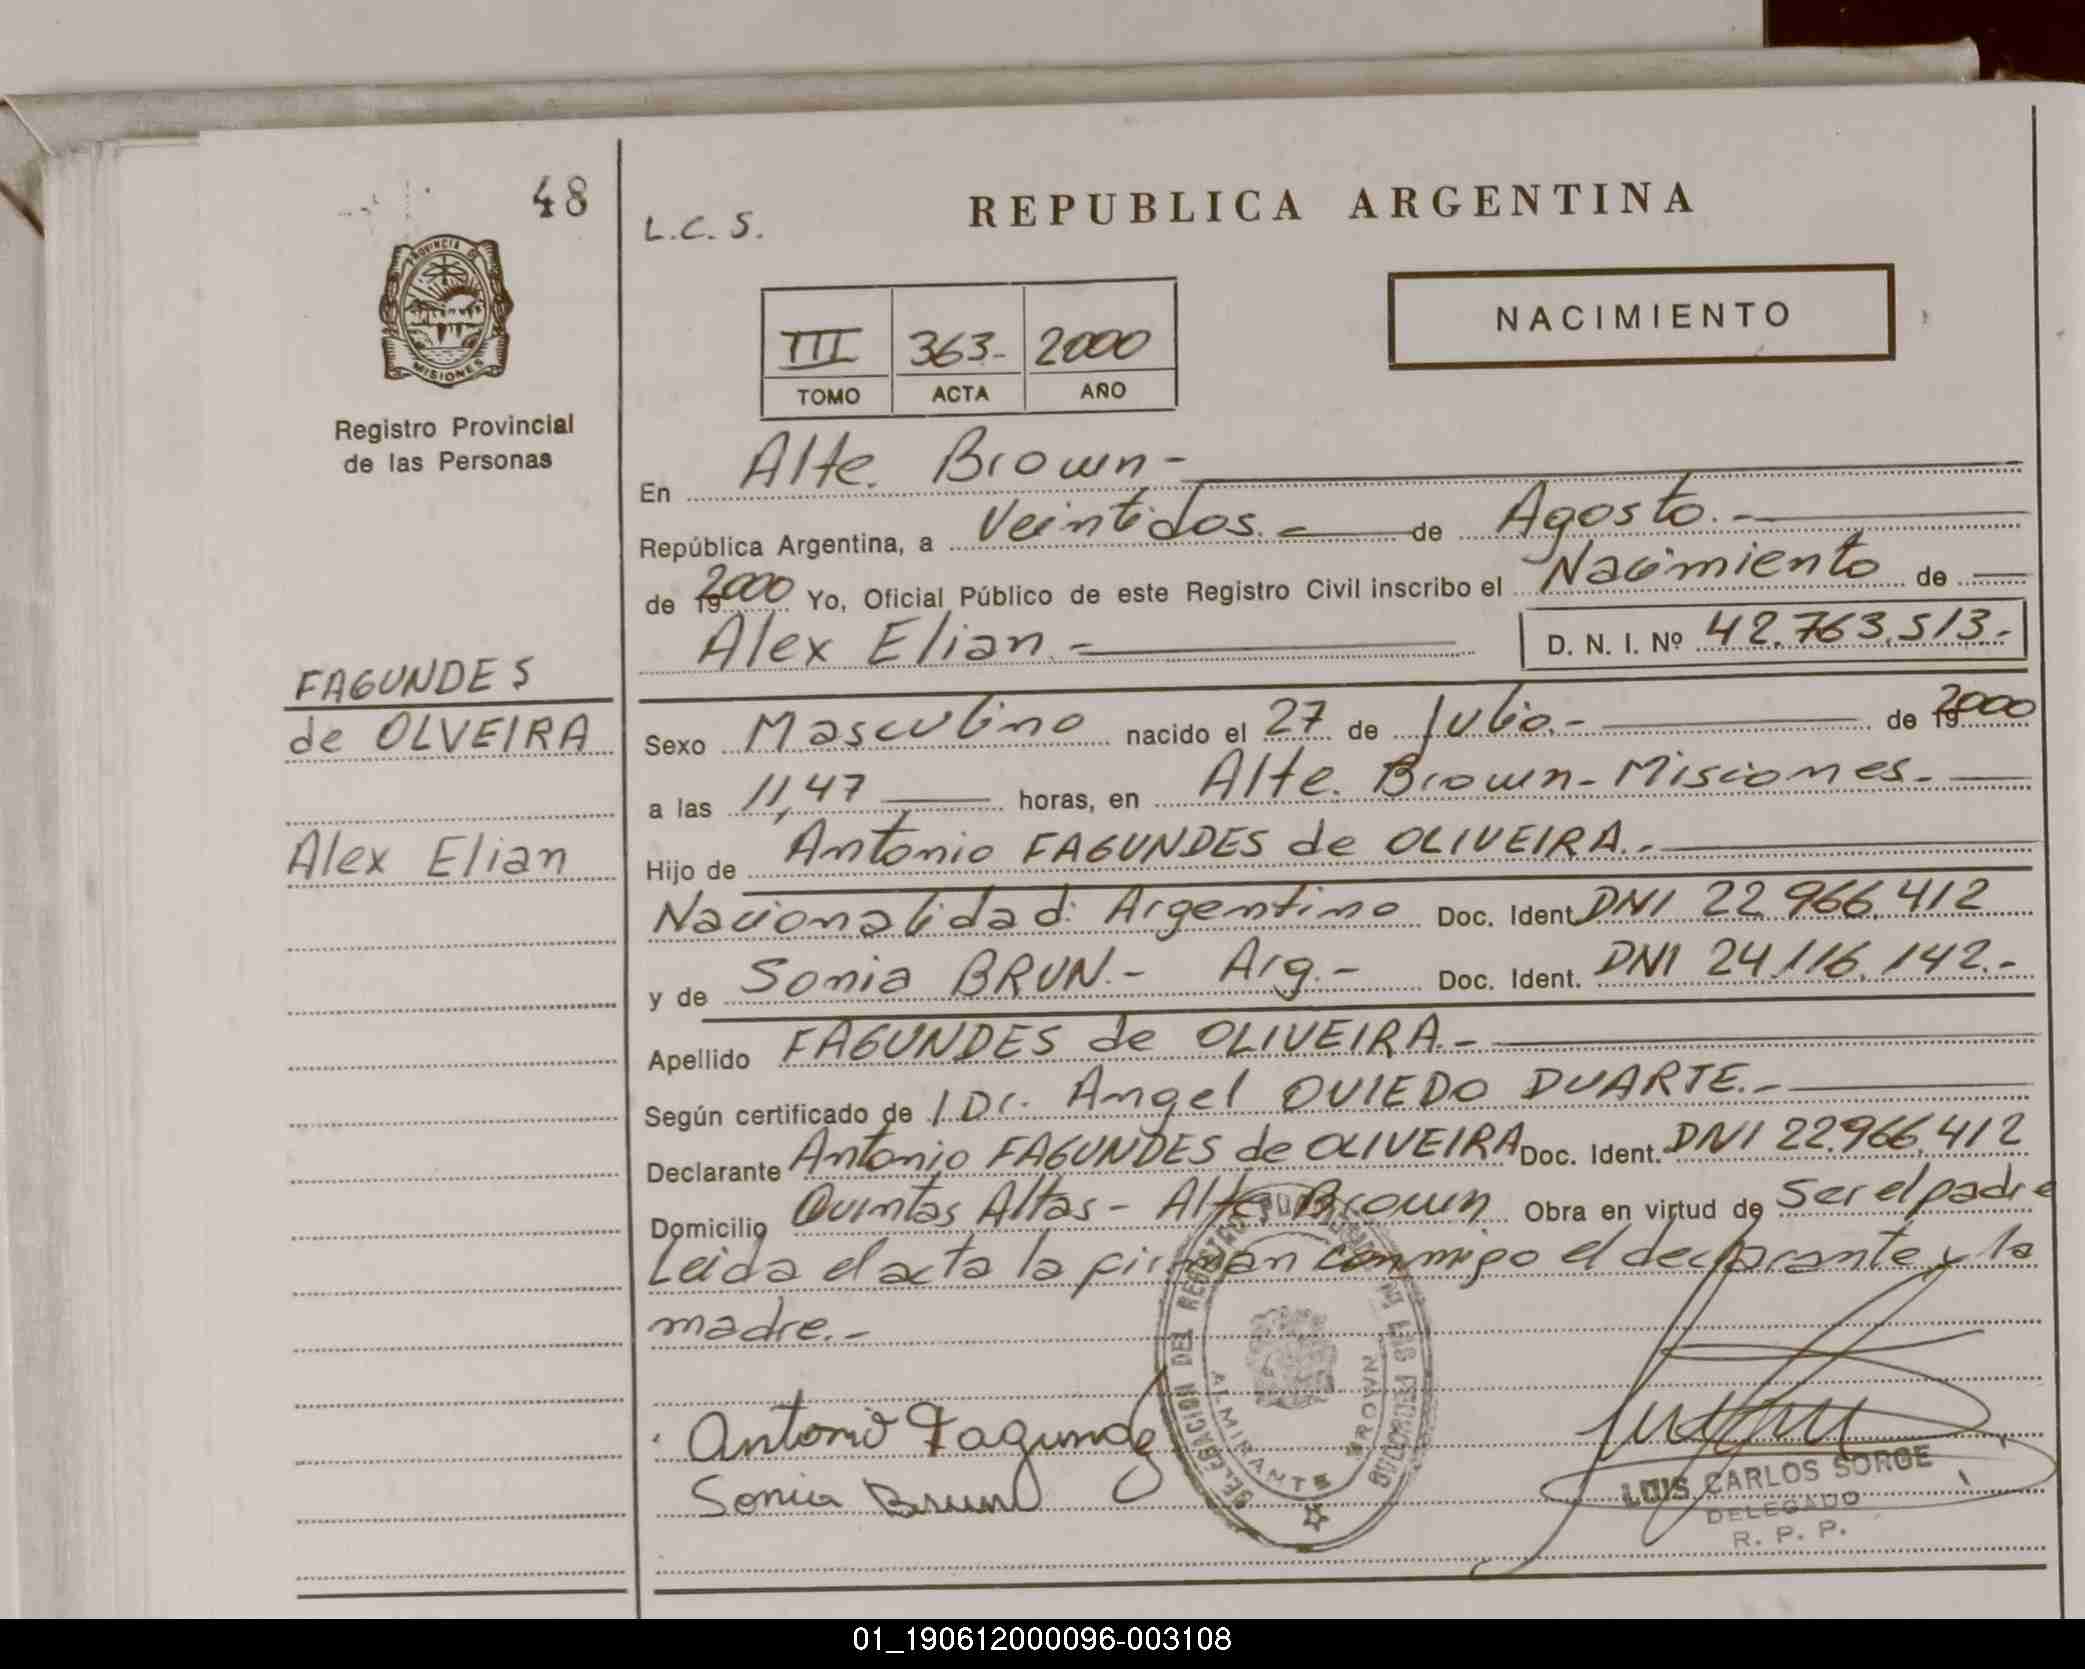 48
PROVINCIA DE
MISIONES
Registro Provincial
de las Personas
FAGUNDES
de OLVEIRA
Alex Elian
L.C.S.
REPUBLICA ARGENTINA
III 363- 2000
TOMO ACTA AÑO
NACIMIENTO
En Alte. Brown-
República Argentina, a Veintidos.- de Agosto.-
de 192000 Yo, Oficial Público de este Registro Civil inscribo el Nacimiento de
Alex Elian.- D. N. I. Nº 42.763.513.-
Sexo Masculino nacido el 27 de Julio.- de 192000
a las 11,47 horas, en Alte. Brown-Misiones.-
Hijo de Antonio FAGUNDES de OLIVEIRA.-
Nacionalidad: Argentino Doc. Ident. DNI 22.966.412
y de Sonia BRUN.- Arg.- Doc. Ident. DNI 24.116.142.-
Apellido FAGUNDES de OLIVEIRA.-
Según certificado de / Dr. Angel OVIEDO DUARTE.-
Declarante Antonio FAGUNDES de OLIVEIRA Doc. Ident. DNI 22.966.412
Domicilio Quintas Altas - Alte Brown Obra en virtud de ser el padre
Leida el acta la firman conmigo el declarante y la
madre.-
DELEGACION DEL REGISTRO DE LAS PERSONAS
ALMIRANTE BROWN
Antonio Fagundez
Sonia Brun
LUIS CARLOS SORGE
DELEGADO
R. P. P.
01_190612000096-003108